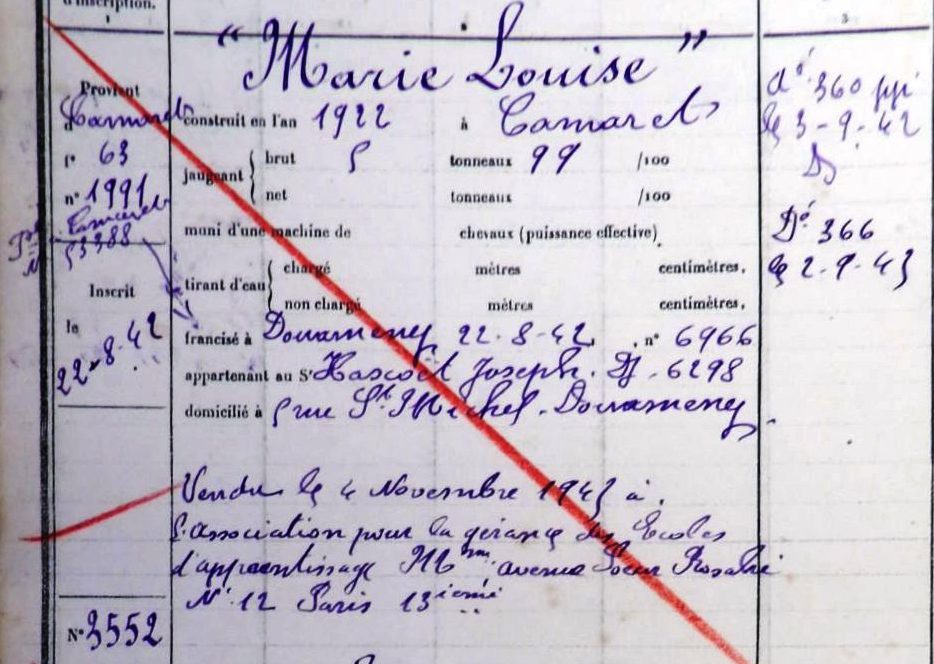 d'inscription.
1
3
" Marie Louise "
Provient
d Camaret
f° 63
n° 1991
Camaret
53388
Inscrit
le
22-8-42
N° 3552
construit en l'an 1922 à Camaret
jaugeant brut 5 tonneaux 99 /100
net tonneaux /100
muni d'une machine de chevaux (puissance effective)
tirant d'eau chargé mètres centimètres.
non chargé mètres centimètres.
francisé à Douarnenez 22-8-42. , n° 6966
appartenant au Sr Hascoët Joseph. DZ. 6298
domicilié à 5 rue St Michel. Douarnenez.
Vendu le 4 Novembre 1943 à.
l'association pour la gérance des Ecoles
d'apprentissage Mmes avenue Soeur Rosalie
N° 12 Paris 13ième
dé 360
le 3-9-42
Dé 366
le 2-9-43